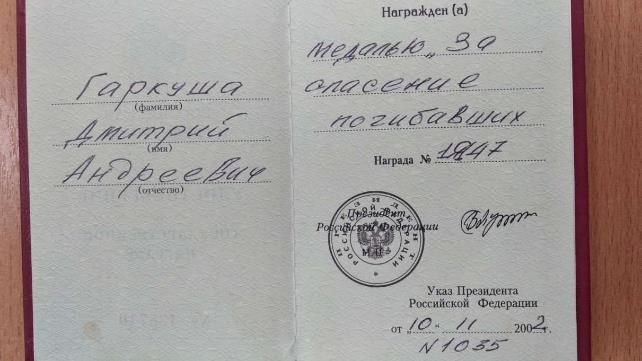 Гаркуша
(фамилия)
Дмитрий
(имя)
Андреевич
(отчество)
Награжден (а)
медалью „За
спасение
погибавших
Награда №
Президент
Российской Федерации
ПРЕЗИДЕНТ
РОССИЙСКОЙ ФЕДЕРАЦИИ
Указ Президента
Российской Федерации
от „10“ 11 2002 г.
N1035